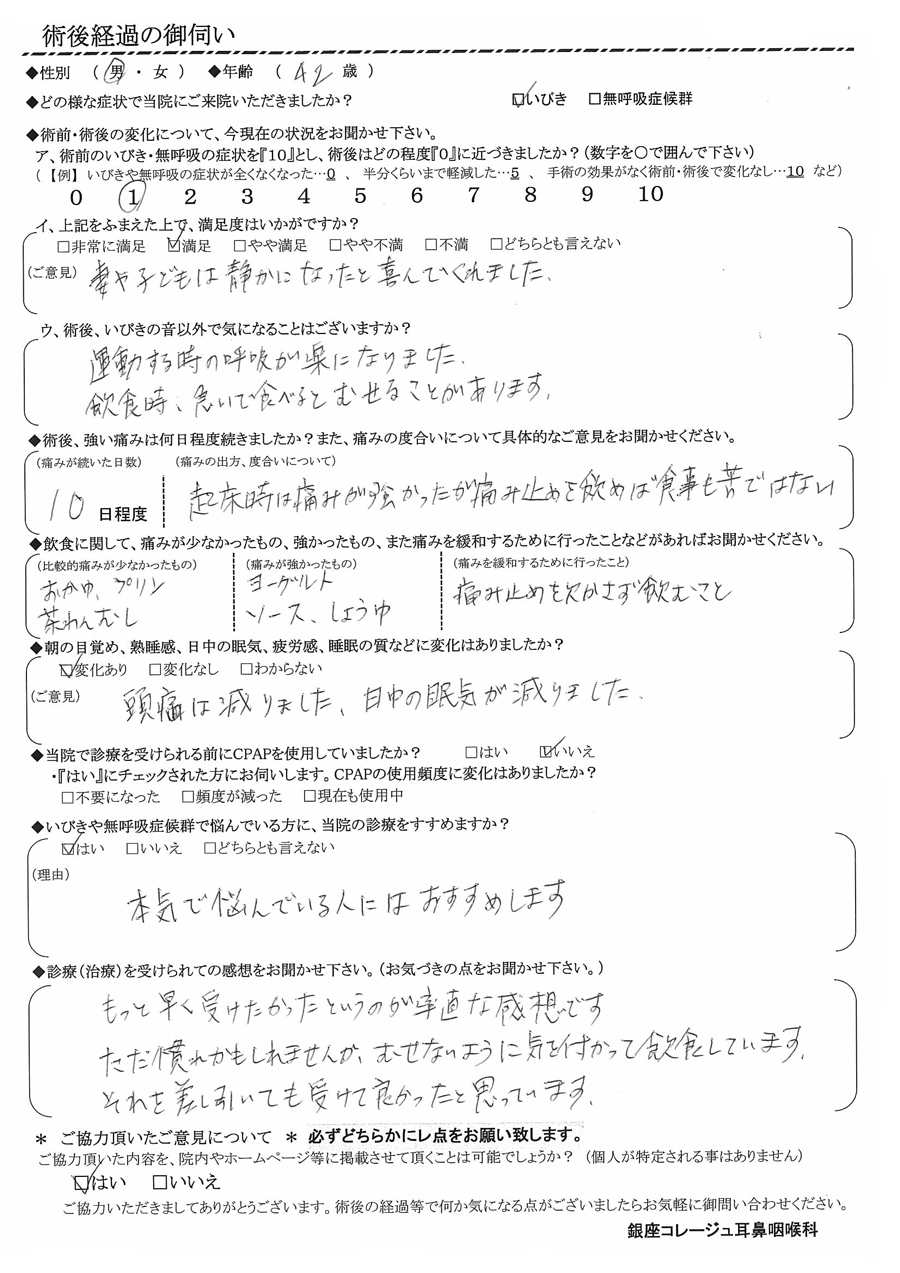 術後経過の御伺い
◆性別 （ 男 ・ 女 ） ◆年齢 （ 42 歳 ）
◆どの様な症状で当院にご来院いただきましたか？ ☑いびき □無呼吸症候群
◆術前・術後の変化について、今現在の状況をお聞かせ下さい。
ア、術前のいびき・無呼吸の症状を『10』とし、術後はどの程度『0』に近づきましたか？（数字を○で囲んで下さい）
（【例】いびきや無呼吸の症状が全くなくなった…0 、 半分くらいまで軽減した…5 、 手術の効果がなく術前・術後で変化なし…10 など）
0 1 2 3 4 5 6 7 8 9 10
イ、上記をふまえた上で、満足度はいかがですか？
□非常に満足 ☑満足 □やや満足 □やや不満 □不満 □どちらとも言えない
（ご意見） 妻や子どもは静かになったと喜んでくれました。
ウ、術後、いびきの音以外で気になることはございますか？
運動する時の呼吸が楽になりました。
飲食時、急いで食べるとむせることがあります。
◆術後、強い痛みは何日程度続きましたか？また、痛みの度合いについて具体的なご意見をお聞かせください。
（痛みが続いた日数） （痛みの出方、度合いについて）
10 日程度 起床時は痛みが強かったが痛み止めを飲めば食事も苦ではない
◆飲食に関して、痛みが少なかったもの、強かったもの、また痛みを緩和するために行ったことなどがあればお聞かせください。
（比較的痛みが少なかったもの） （痛みが強かったもの） （痛みを緩和するために行ったこと）
おかゆ、プリン ヨーグルト 痛み止めを欠かさず飲むこと
茶わんむし ソース、しょうゆ
◆朝の目覚め、熟睡感、日中の眠気、疲労感、睡眠の質などに変化はありましたか？
☑変化あり □変化なし □わからない
（ご意見） 頭痛は減りました、日中の眠気が減りました。
◆当院で診療を受けられる前にCPAPを使用していましたか？ □はい ☑いいえ
・『はい』にチェックされた方にお伺いします。CPAPの使用頻度に変化はありましたか？
□不要になった □頻度が減った □現在も使用中
◆いびきや無呼吸症候群で悩んでいる方に、当院の診療をすすめますか？
☑はい □いいえ □どちらとも言えない
（理由）
本気で悩んでいる人にはおすすめします
◆診療（治療）を受けられての感想をお聞かせ下さい。（お気づきの点をお聞かせ下さい。）
もっと早く受けたかったというのが率直な感想です
ただ慣れかもしれませんが、むせないように気を付かって飲食しています。
それを差し引いても受けて良かったと思っています。
＊ ご協力頂いたご意見について ＊ 必ずどちらかにレ点をお願い致します。
ご協力頂いた内容を、院内やホームページ等に掲載させて頂くことは可能でしょうか？（個人が特定される事はありません）
☑はい □いいえ
ご協力いただきましてありがとうございます。術後の経過等で何か気になる点がございましたらお気軽に御問い合わせください。
銀座コレージュ耳鼻咽喉科